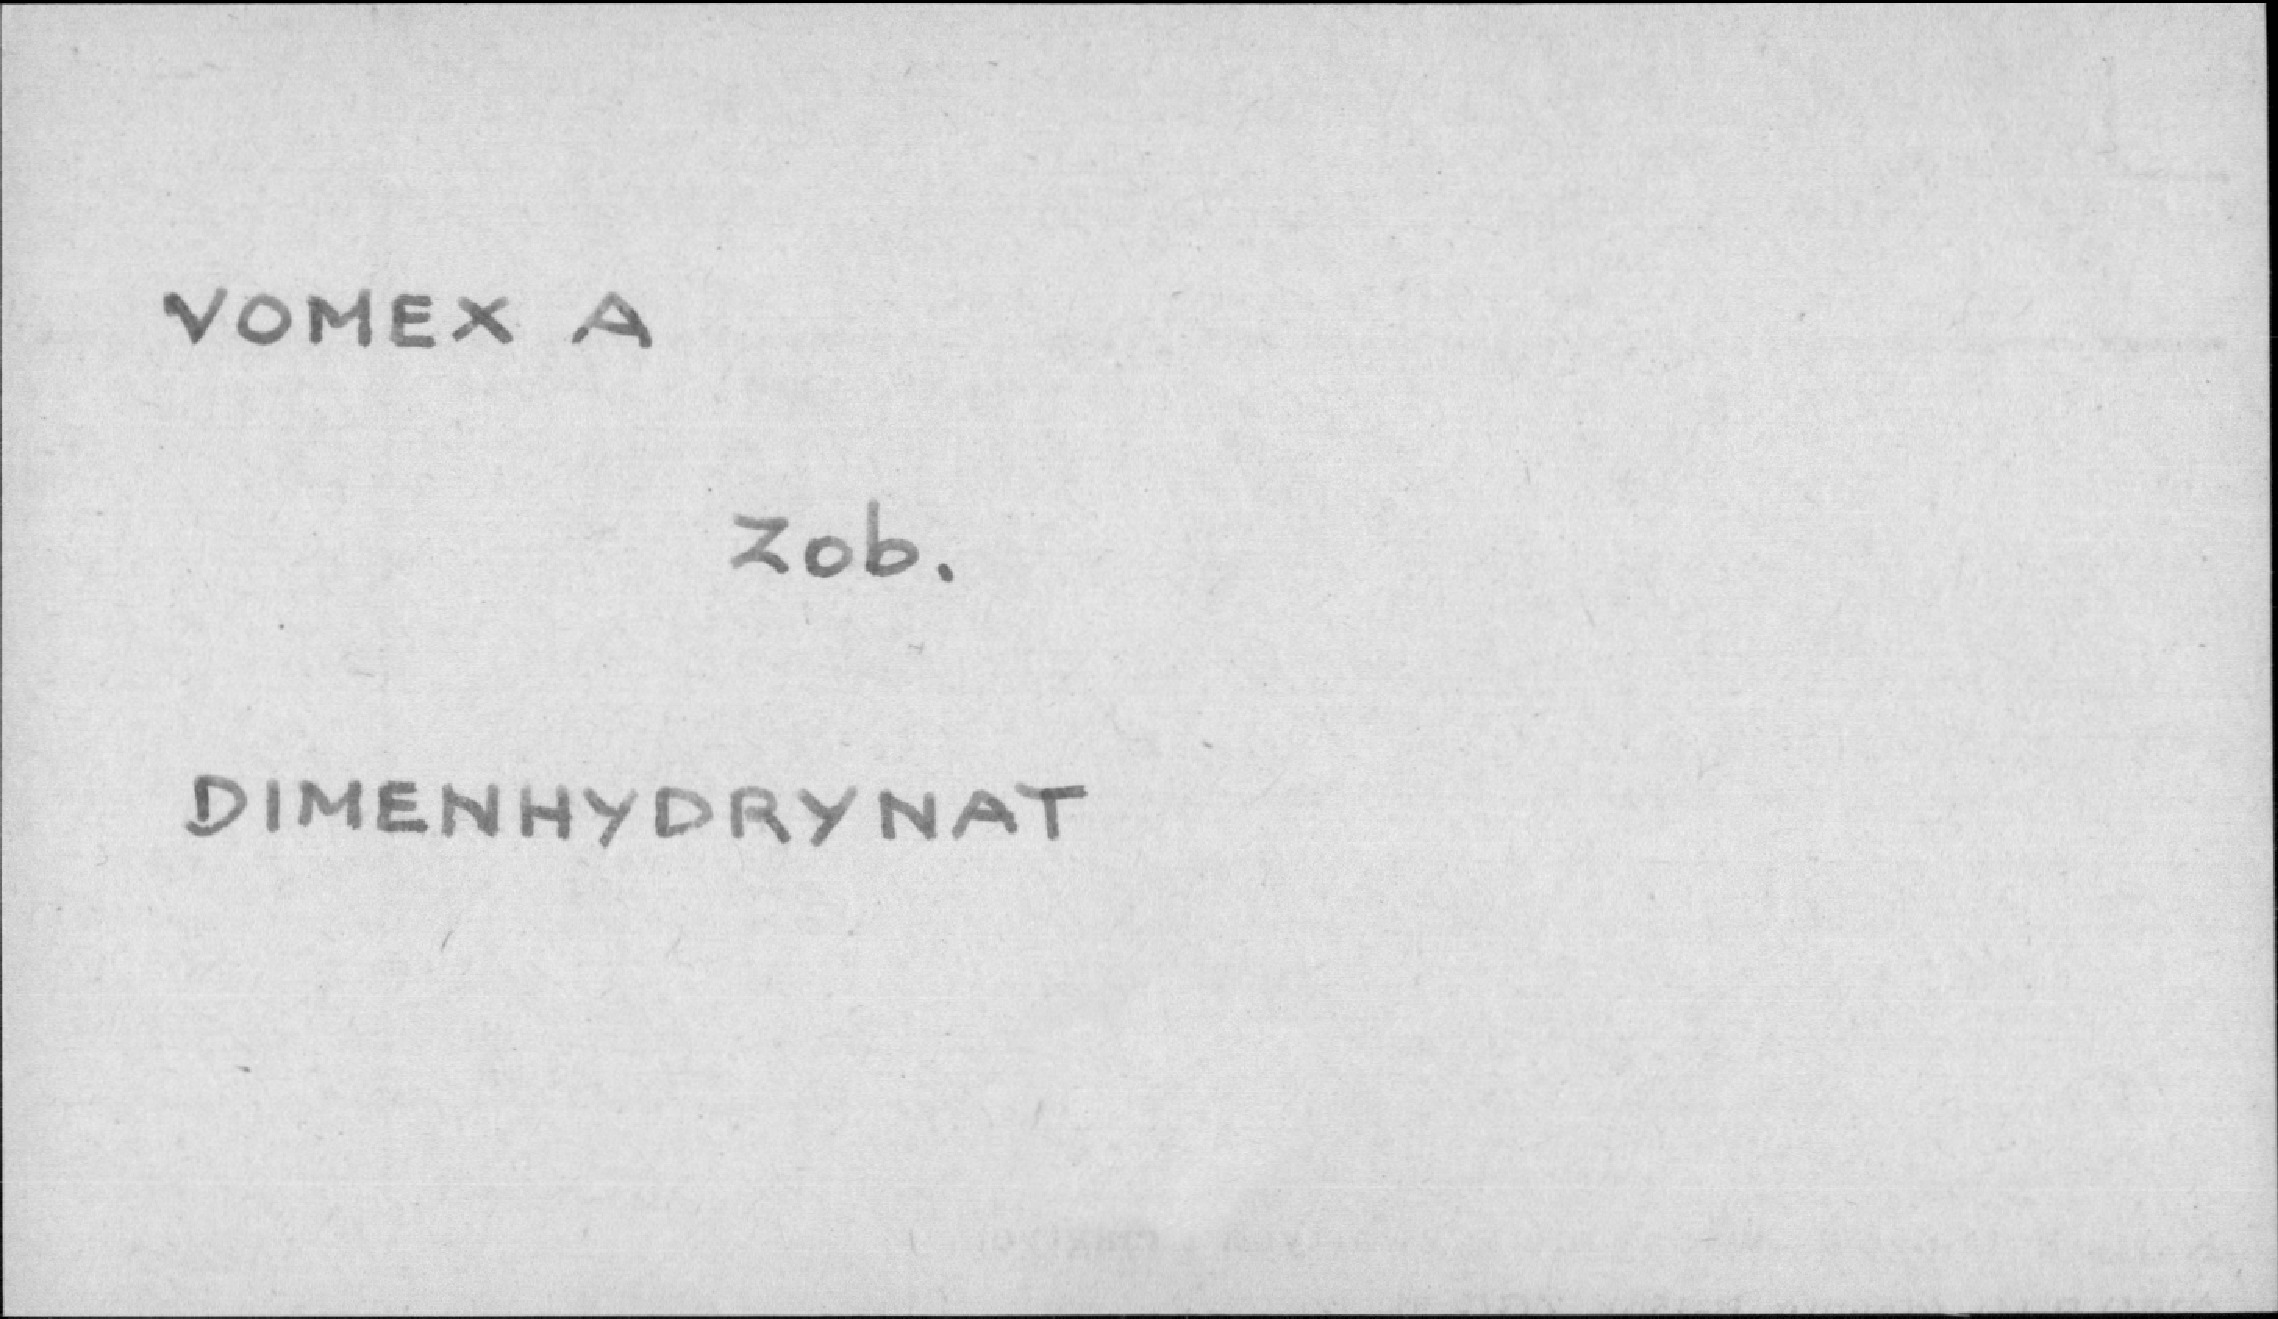 VOMEX A
Zob.
DIMENHYDRYNAT